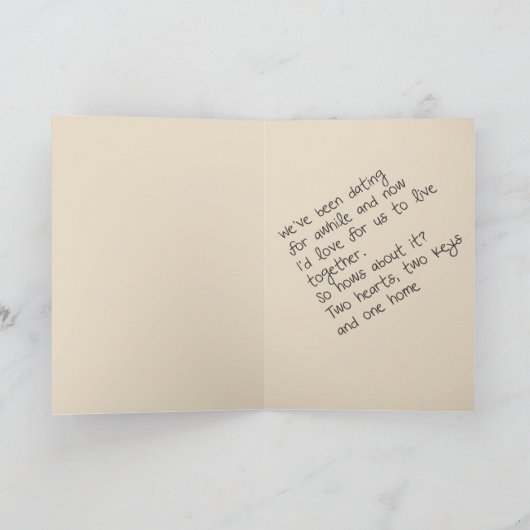 We've been dating
for awhile and now
I'd love for us to live
together.
So hows about it?
Two hearts, two keys
and one home